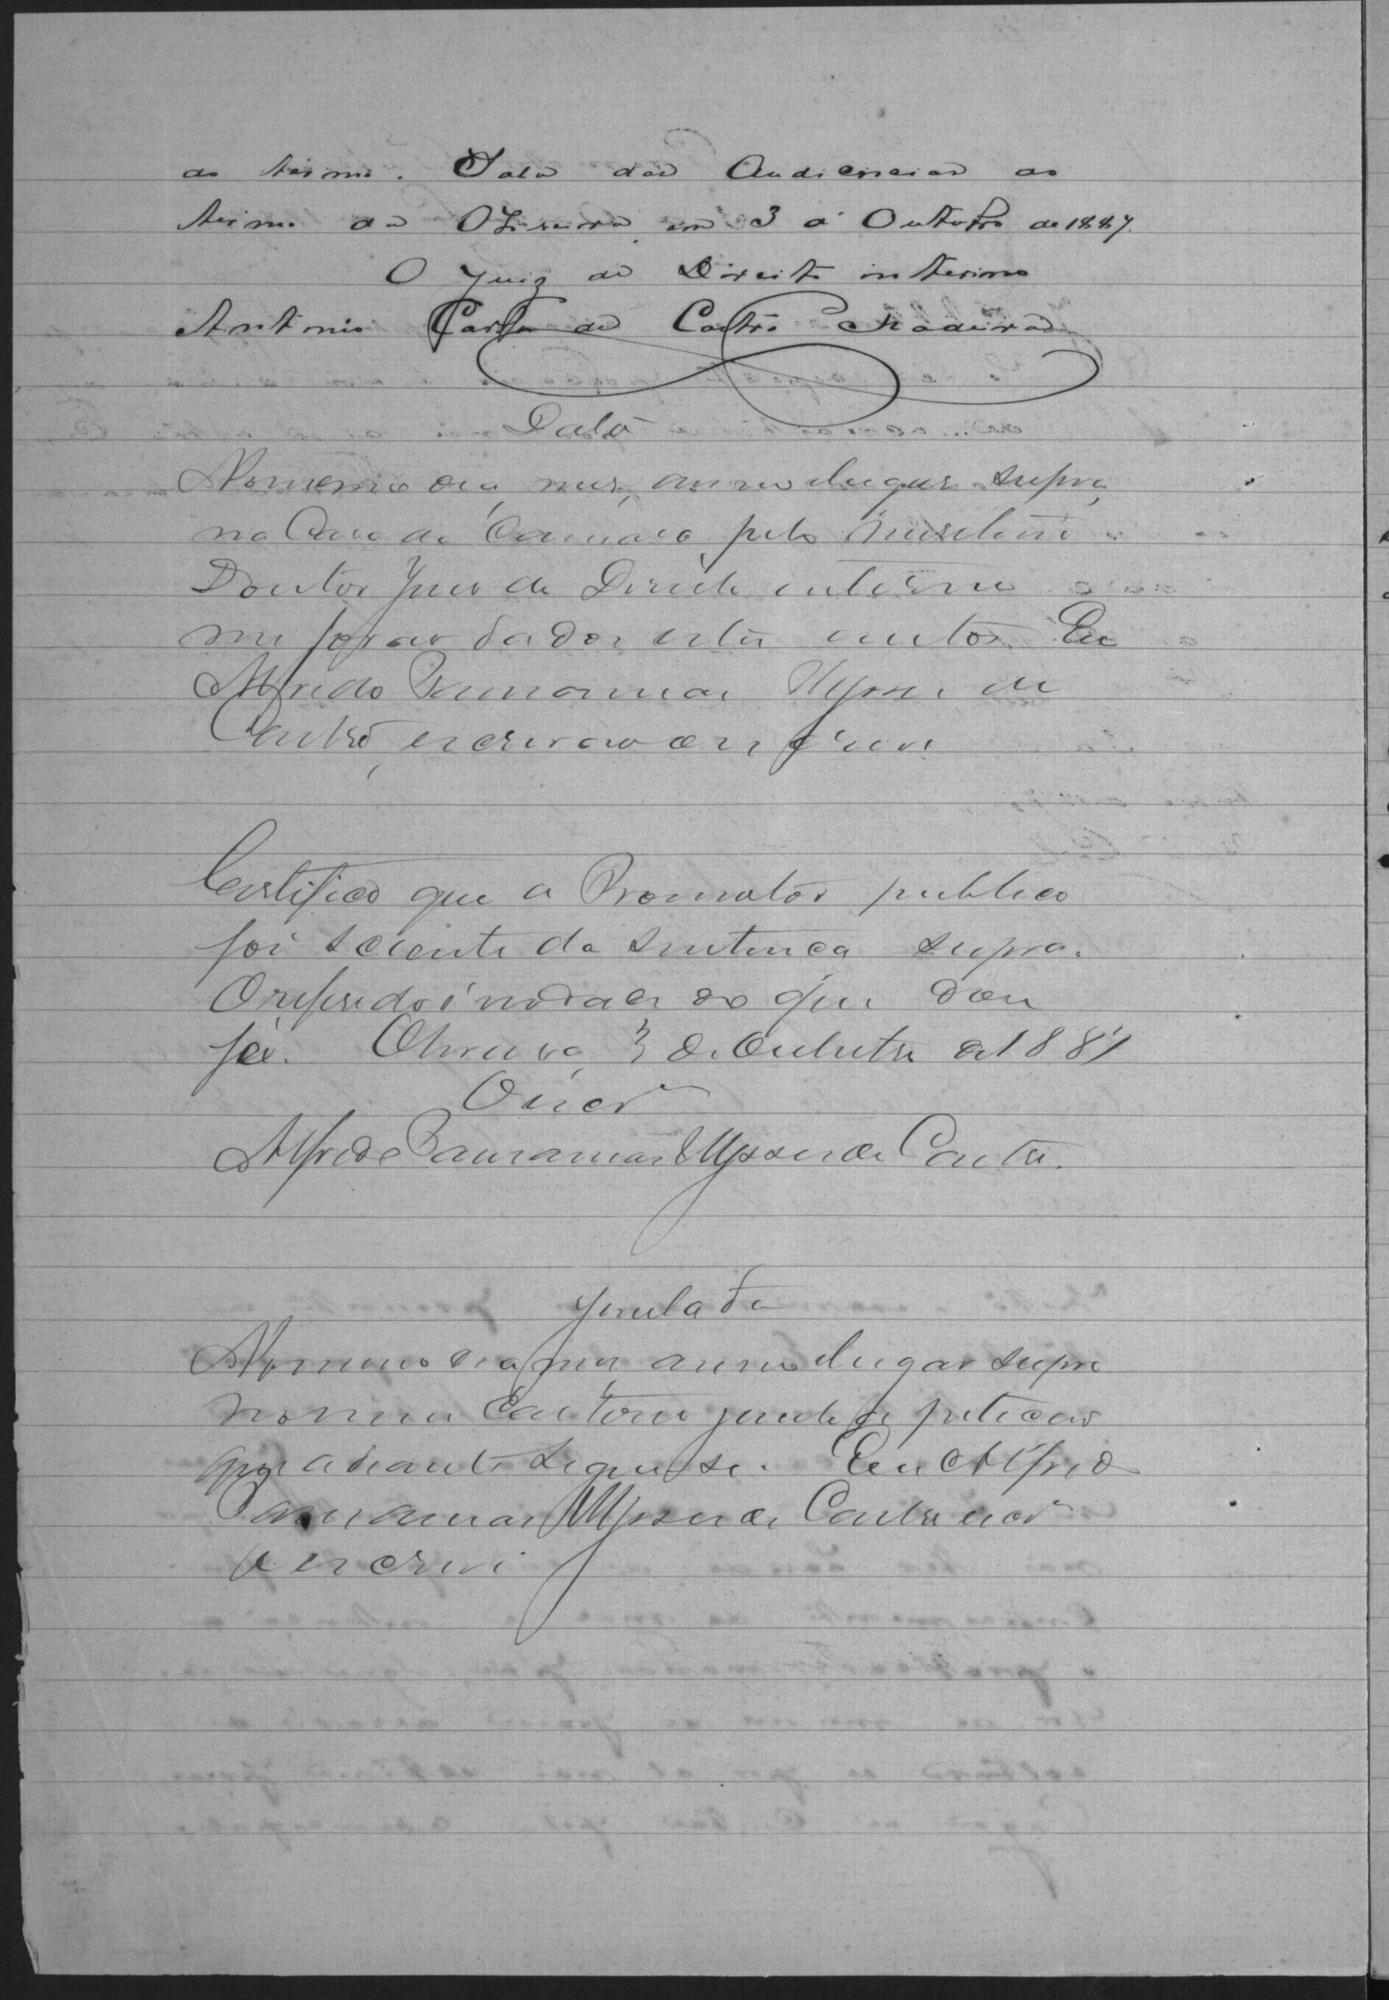 do termo. Sala das Audiencias do
termo da Oliveira, em 3 d' Outubro de 1887.
O Juiz de Direito interino
Antonio Carlos de Castro Madeira
Data
No mesmo dia, mes, anno e lugar supra,
na Casa da Camara, pelo Meretissimo
Doutor Juiz de Direito interino
me forão dados estes autos. Eu
Alfredo Paranamar Ulysses de
Castro, escrivão o escrevi
Certifico que o Promotor publico
foi sciente da sentença supra.
O referido é verdade do que dou
fé. Oliveira, 3 de Outubro de 1887
O escr.
Alfredo Paranamar Ulysses de Castro.
Juntada
No mesmo dia, mes, anno e lugar supra
no meu Cartorio junto a petição
que adiante segue-se. Eu Alfredo
Paranamar Ulysses de Castro escr.
o escrevi